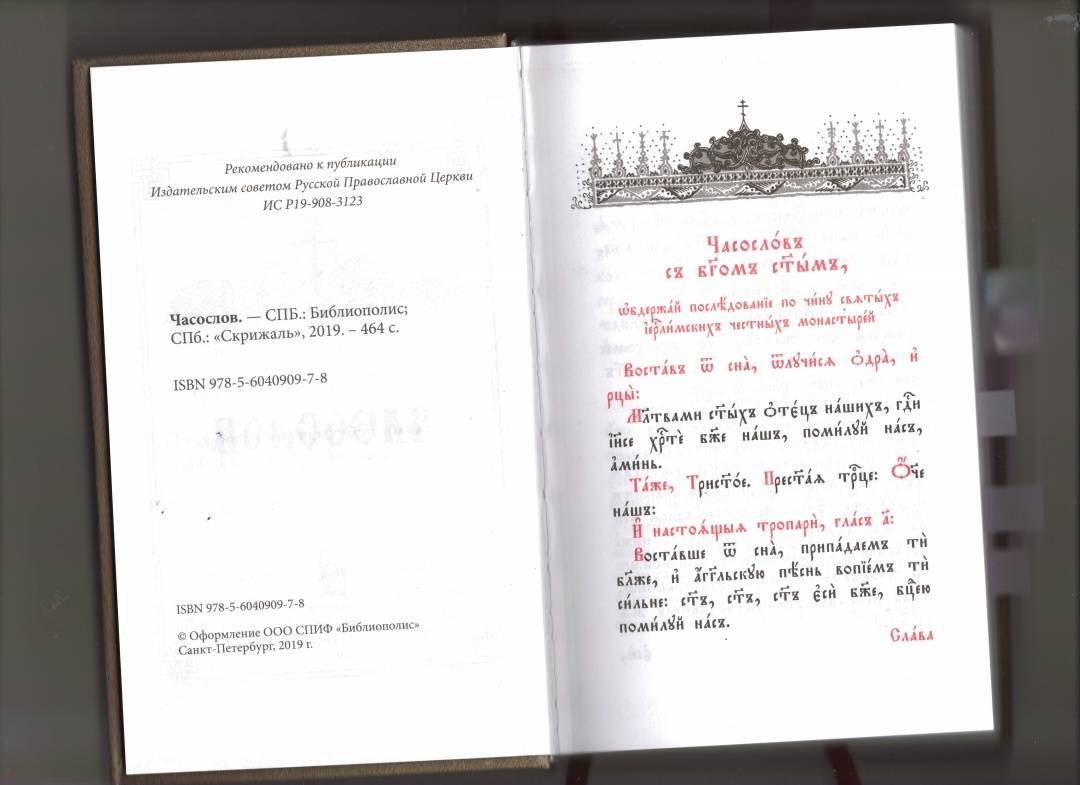 Рекомендовано к публикации
Издательским советом Русской Православной Церкви
ИС Р19-908-3123
Часослов. — СПБ.: Библиополис;
СПб.: «Скрижаль», 2019. – 464 с.
ISBN 978-5-6040909-7-8
ISBN 978-5-6040909-7-8
© Оформление ООО СПИФ «Библиополис»
Санкт-Петербург, 2019 г.
Часосло́въ
съ бг҃омъ ст҃ы́мъ,
ѡ҆бдержа́й послѣ́дованїе по чи́нꙋ свѧты́хъ
і҆ерⷭ҇ли́мскихъ че́стныхъ монасты́рей
Воста́въ ѿ сна̀, ѿлꙋчи́сѧ ѻ҆дра̀, и҆
рцы̀:
Мл҃твами ст҃ы́хъ ѻ҆те́цъ на́шихъ, гдⷭ҇и
і҆и҃се хрⷭ҇тѐ бж҃е на́шъ, поми́лꙋй на́съ,
а҆ми́нь.
Та́же, Трист҃о́е. Прест҃а́ѧ трⷪ҇це: Ѻ҆́ч҃е
на́шъ:
И҆ настоѧ́щыѧ тропарѝ, гла́съ а҃:
Воста́вше ѿ сна̀, припа́даемъ тѝ
бл҃же, и҆ а҆́гг҃льскꙋю пѣ́снь вопїе́мъ тѝ
си́льне: ст҃ъ, ст҃ъ, ст҃ъ є҆сѝ бж҃е, бцⷣею
поми́лꙋй на́съ.
Сла́ва